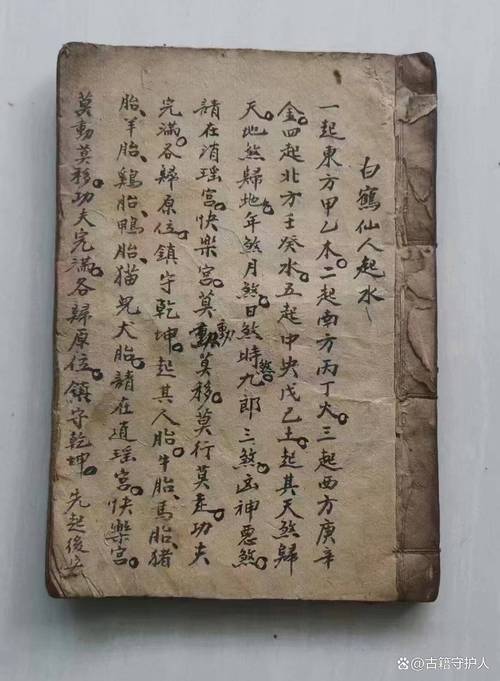 白鶴仙人起水
一起東方甲乙木。二起南方丙丁火。三起西方庚辛
金。四起北方壬癸水。五起中央戊己土。起其天煞歸
天。地煞歸地。年煞月煞。日煞時煞。九郎三煞。凶神惡煞。
請在消瑶宫。快樂宫。莫動莫移。莫行莫走。功夫
完滿。各歸原位。鎮守乾坤。起其人胎、牛胎、馬胎、猪
胎、羊胎、鷄胎、鴨胎、猫兒犬胎。請在逍瑶宫。快樂宫。
莫動莫移。功夫完滿。各歸原位。鎮守乾坤。先起後
百家号@古籍守护人